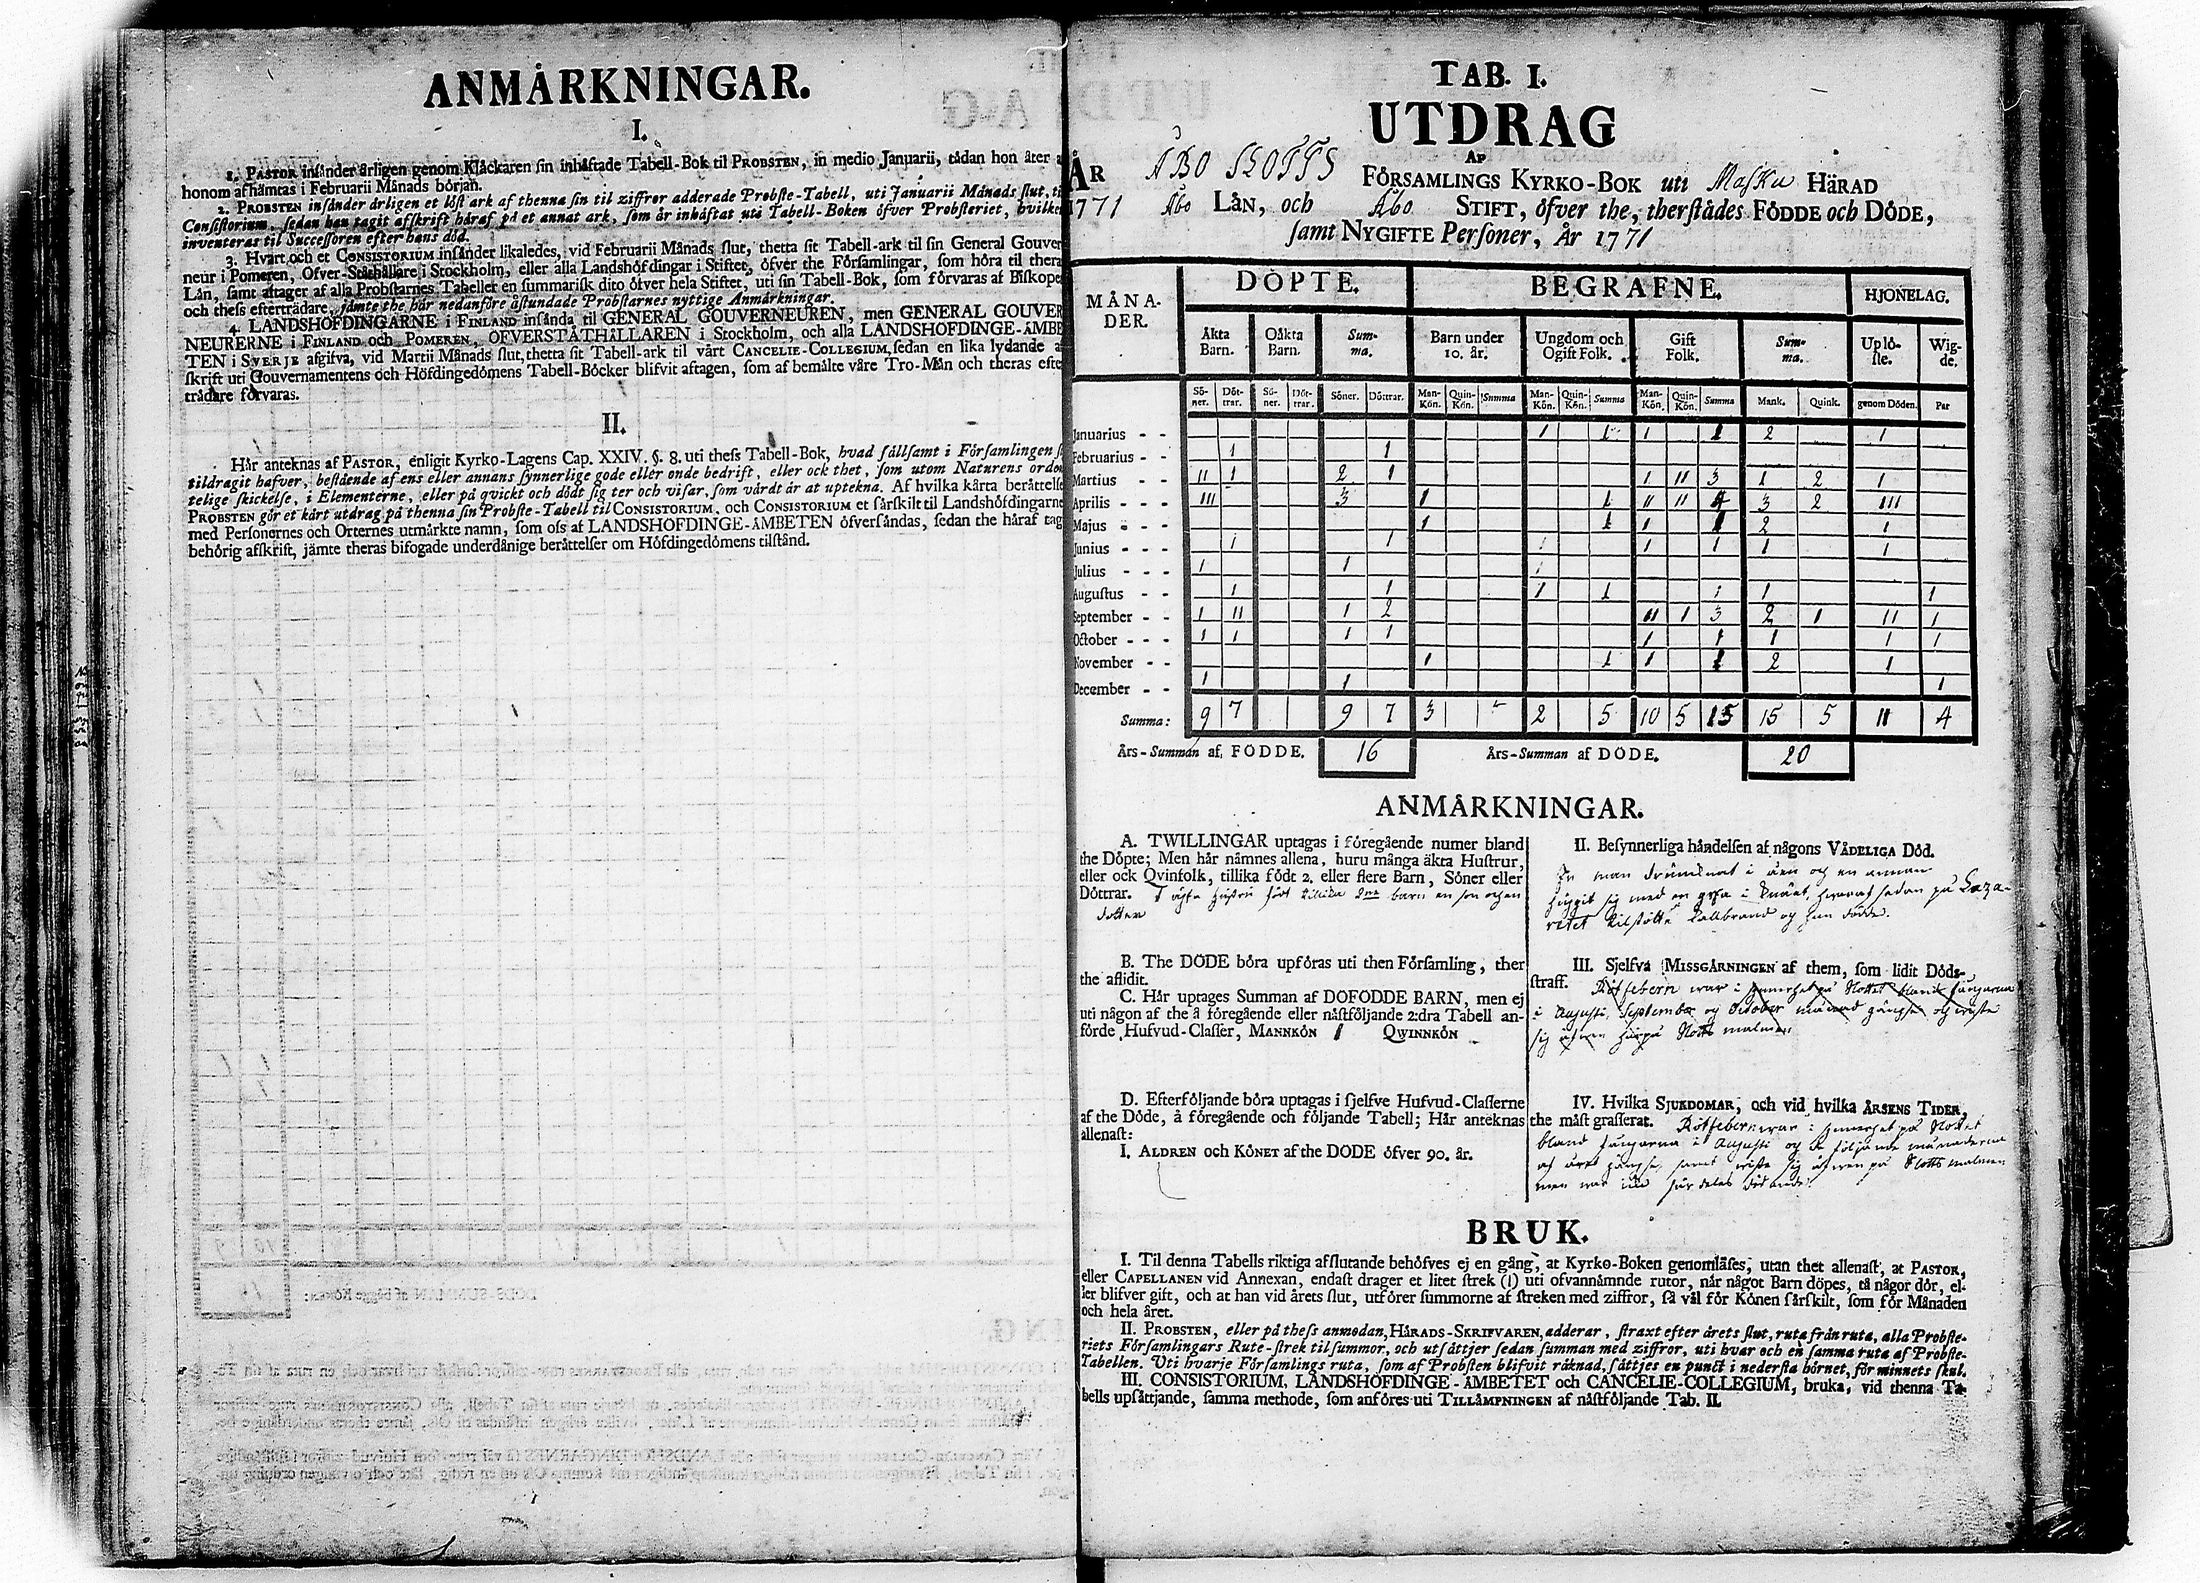 ANMÅRKNINGAR.
I.
1. PASTOR insånder årligen genom Klåckaren sin inhäftade Tabell-Bok til PROBSTEN, in medio Januarii, tådan hon åter a
honom afhämtas i Februarii Månads början.
2. PROBSTEN insånder årligen et löst ark af thenna sin til ziffror adderade Probste-Tabell, uti Januarii Månads slut, ti
Consistorium, sedan han tagit afskrift häraf på et annat ark, som år inhåftat uti Tabell-Boken öfver Probsteriet, hvilke
inventeras til Successoren efter hans död.
3. Hvart och et CONSISTORIUM insånder likaledes, vid Februarii Månads slut, thetta sit Tabell-ark til sin General Gouver
neur i Pomeren, Ofver-Ståthållare i Stockholm, eller alla Landshöfdingar i Stiftet, öfver the Församlingar, som höra til thera
Lån, samt aftager af alla Probstarnes Tabeller en summarisk dito öfver hela Stiftet, uti sin Tabell-Bok, som förvaras af Biskope
och thess efterträdare, jämte the hår nedanföre åstundade Probstarnes nyttige Anmärkningar.
4. LANDSHOFDINGARNE i FINLAND insånda til GENERAL GOUVERNEUREN, men GENERAL GOUVER
NEURERNE i FINLAND och POMEREN, OFVERSTÅTHÅLLAREN i Stockholm, och alla LANDSHOFDINGE-ÅMBE
TEN i SVERJE afgifva, vid Martii Månads slut, thetta sit Tabell-ark til vårt CANCELIE-COLLEGIUM, sedan en lika lydande a
skrift uti Gouvernamentens och Höfdingedömens Tabell-Böcker blifvit aftagen, som af bemålte våre Tro-Mån och theras efte
trådare förvaras.
II.
Hår anteknas af PASTOR, enligit Kyrko-Lagens Cap. XXIV. §. 8. uti thess Tabell-Bok, hvad sållsamt i Församlingen s
tildragit hafver, bestående af ens eller annans synnerlige gode eller onde bedrift, eller ock thet, som utom Naturens ordn
telige skickelse, i Elementerne, eller på qvickt och dödt sig ter och visar, som vårdt år at uptekna. Af hvilka kårta beråttelse
PROBSTEN gör et kårt utdrag på thenna sin Probste-Tabell til CONSISTORIUM, och CONSISTORIUM et sårskilt til Landshöfdingarne
med Personernes och Orternes utmårkte namn, som oss af LANDSHOFDINGE-ÅMBETEN öfversåndas, sedan the håraf tag
behörig afskrift, jämte theras bifogade underdånige beråttelser om Höfdingedömens tilstånd.
TAB. I.
UTDRAG
AF
ÅR ÅBO SLOTTS FÖRSAMLINGS KYRKO-BOK uti Masku HÄRAD
1771 Åbo LÅN, och Åbo STIFT, öfver the, therstådes FÖDDE och DÖDE,
samt NYGIFTE Personer, År 1771
MÅNADER. DÖPTE. BEGRAFNE. HJONELAG.
Åkta Barn. Oåkta Barn. Summa. Barn under 10. år. Ungdom och Ogift Folk. Gift Folk. Summa. Uplöste. Wigde.
Söner. Döttrar. Söner. Döttrar. Söner. Döttrar. Man-Kön. Quin-Kön. Summa Man-Kön. Quin-Kön. Summa Man-Kön. Quin-Kön. Summa Mank. Quink. genom Döden. Par
Januarius - - 1 1 1 1 2 1
Februarius - - 1 1
Martius - - II 1 2 1 1 II 3 1 2 1
Aprilis - - - III 3 1 1 II II 4 3 2 III
Majus - - 1 1 1 1 2 1
Junius - - - 1 1 1 1 1 1 1
Julius - - - 1 1 1
Augustus - - 1 1 1 1 1 1 1
September - - 1 II 1 2 II 1 3 2 1 II 1
October - - - 1 1 1 1 1 1 1 1 1
November - - 1 1 1 1 2 1
December - - 1 1 1
Summa: 9 7 9 7 3 2 5 10 5 15 15 5 11 4
Års-Summan af FÖDDE. 16 Års-Summan af DÖDE. 20
ANMÅRKNINGAR.
A. TWILLINGAR uptagas i föregående numer bland
the Döpte; Men hår nåmnes allena, huru många åkta Hustrur,
eller ock Qvinfolk, tillika födt 2. eller flere Barn, Söner eller
Döttrar. 1 ägta hustru födt tillika 2ne barn en son och en
dotter
B. The DÖDE böra upföras uti then Församling, ther
the aflidit.
C. Hår uptages Summan af DÖFÖDDE BARN, men ej
uti någon af the å föregående eller nåstföljande 2:dra Tabell an-
förde Hufvud-Classer, MANNKÖN 1 QWINNKÖN -
D. Efterföljande böra uptagas i sjelfve Hufvud-Classerne
af the Döde, å föregående och följande Tabell; Hår anteknas
allenast:
I. ALDREN och KÖNET af the DÖDE öfver 90. år.
II. Besynnerliga håndelsen af någons VÅDELIGA Död.
En man drunknat i åen og en annan
huggit sig med en yxa i knäet, hwarat sedan på Laza-
retet tilstötte kallbrand og han dödde.
III. Sjelfva MISSGÄRNINGEN af them, som lidit Döds-
straff. Rötfebern war i synnerhet på Slottet bland fångarna
i Augusti, September og October månad gängse og wiste
sig äfwen här på Slotts malmen
IV. Hvilka SJUKDOMAR, och vid hvilka ÅRSENS TIDER,
the måst grasserat. Rötfebern war i synnerhet på Slottet
bland fångarna i Augusti og de följande månaderna
af året gängse, samt wiste sig äfwen på Slotts malmen
men war icke särdeles dödande.
BRUK.
I. Til denna Tabells riktiga afslutande behöfves ej en gång, at Kyrko-Boken genomlåses, utan thet allenast, at PASTOR,
eller CAPELLANEN vid Annexan, endast drager et litet strek (|) uti ofvannåmnde rutor, når något Barn döpes, tå någor dör, el-
ler blifver gift, och at han vid årets slut, utförer summorne af streken med ziffror, så vål för Könen sårskilt, som för Månaden
och hela året.
II. PROBSTEN, eller på thess anmodan, HÄRADS-SKRIFVAREN, adderar, straxt efter årets slut, ruta från ruta, alla Probste-
riets Församlingars Rute-strek til summor, och utsåttjer sedan summan med ziffror, uti hvar och en samma ruta af Probste-
Tabellen. Uti hvarje Församlings ruta, som af Probsten blifvit råknad, såttjes en punct i nedersta hörnet, för minnets skul.
III. CONSISTORIUM, LANDSHOFDINGE-ÅMBETET och CANCELIE-COLLEGIUM, bruka, vid thenna Ta-
bells upsåttjande, samma methode, som anföres uti TILLÅMPNINGEN af nåstföljande Tab. II.